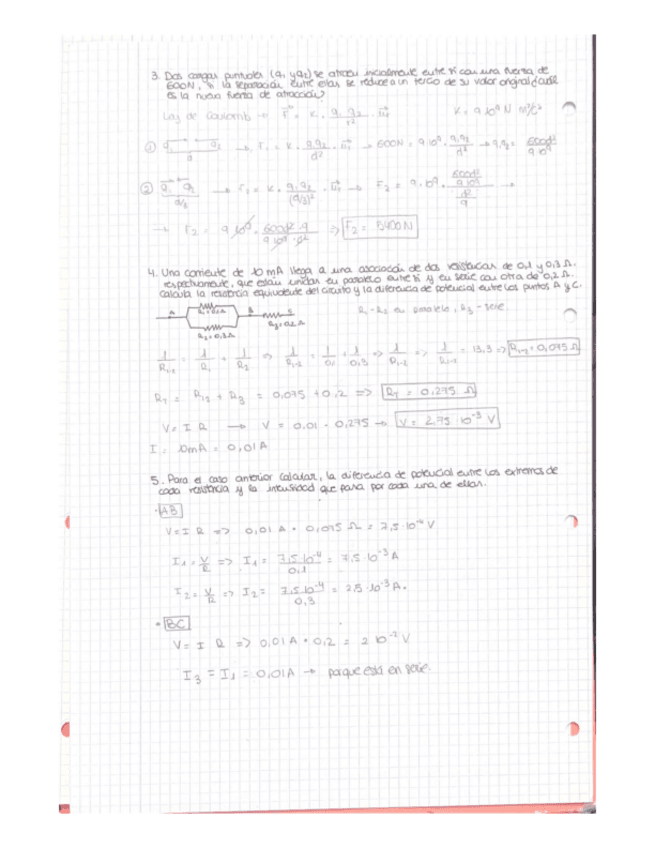 3. Dos cargas puntuales (q₁ y q₂) se atraen inicialmente entre sí con una fuerza de
600N, si la separación entre ellas se reduce a un tercio de su valor original ¿cuál
es la nueva fuerza de atracción?
Ley de Coulomb → F = K · q₁ q₂ / r² · u K = 9·10⁹ N m²/c²
① q₁ q₂ d → F₁ = K · q₁q₂/d² · u → 600N = 9·10⁹ · q₁q₂/d² → q₁q₂ = 600d²/9·10⁹
② q₁ q₂ d/3 → F₂ = K · q₁q₂/(d/3)² · u → F₂ = 9·10⁹ · 600d²/9·10⁹ / d²/9 →
→ F₂ = 9·10⁹ · 600d²·9/9·10⁹·d² => F₂ = 5400N
4. Una corriente de 10 mA llega a una asociación de dos resistencias de 0,1 y 0,3 Ω
respectivamente, que están unidas en paralelo entre sí y en serie con otra de 0,2 Ω.
Calcula la resistencia equivalente del circuito y la diferencia de potencial entre los puntos A y C.
A R₁=0,1Ω B C
R₂=0,3Ω R₃=0,2Ω
R₁-R₂ en paralelo, R₃ - serie
1/R₁₋₂ = 1/R₁ + 1/R₂ => 1/R₁₋₂ = 1/0,1 + 1/0,3 => 1/R₁₋₂ => 1/R₁₋₂ = 13,3 => R₁₋₂ = 0,075Ω
R_T = R₁₂ + R₃ = 0,075 + 0,2 => R_T = 0,275 Ω
V = I R → V = 0,01 · 0,275 → V = 2,75·10⁻³ V
I = 10mA = 0,01A
5. Para el caso anterior calcular, la diferencia de potencial entre los extremos de
cada resistencia y la intensidad que pasa por cada una de ellas.
· AB
V = I R => 0,01 A · 0,075 Ω = 7,5·10⁻⁴ V
I₁ = V/R => I₁ = 7,5·10⁻⁴/0,1 = 7,5·10⁻³ A
I₂ = V/R => I₂ = 7,5·10⁻⁴/0,3 = 2,5·10⁻³ A.
· BC
V = I R => 0,01 A · 0,2 = 2·10⁻³ V
I₃ = I₁ = 0,01A → porque está en serie.